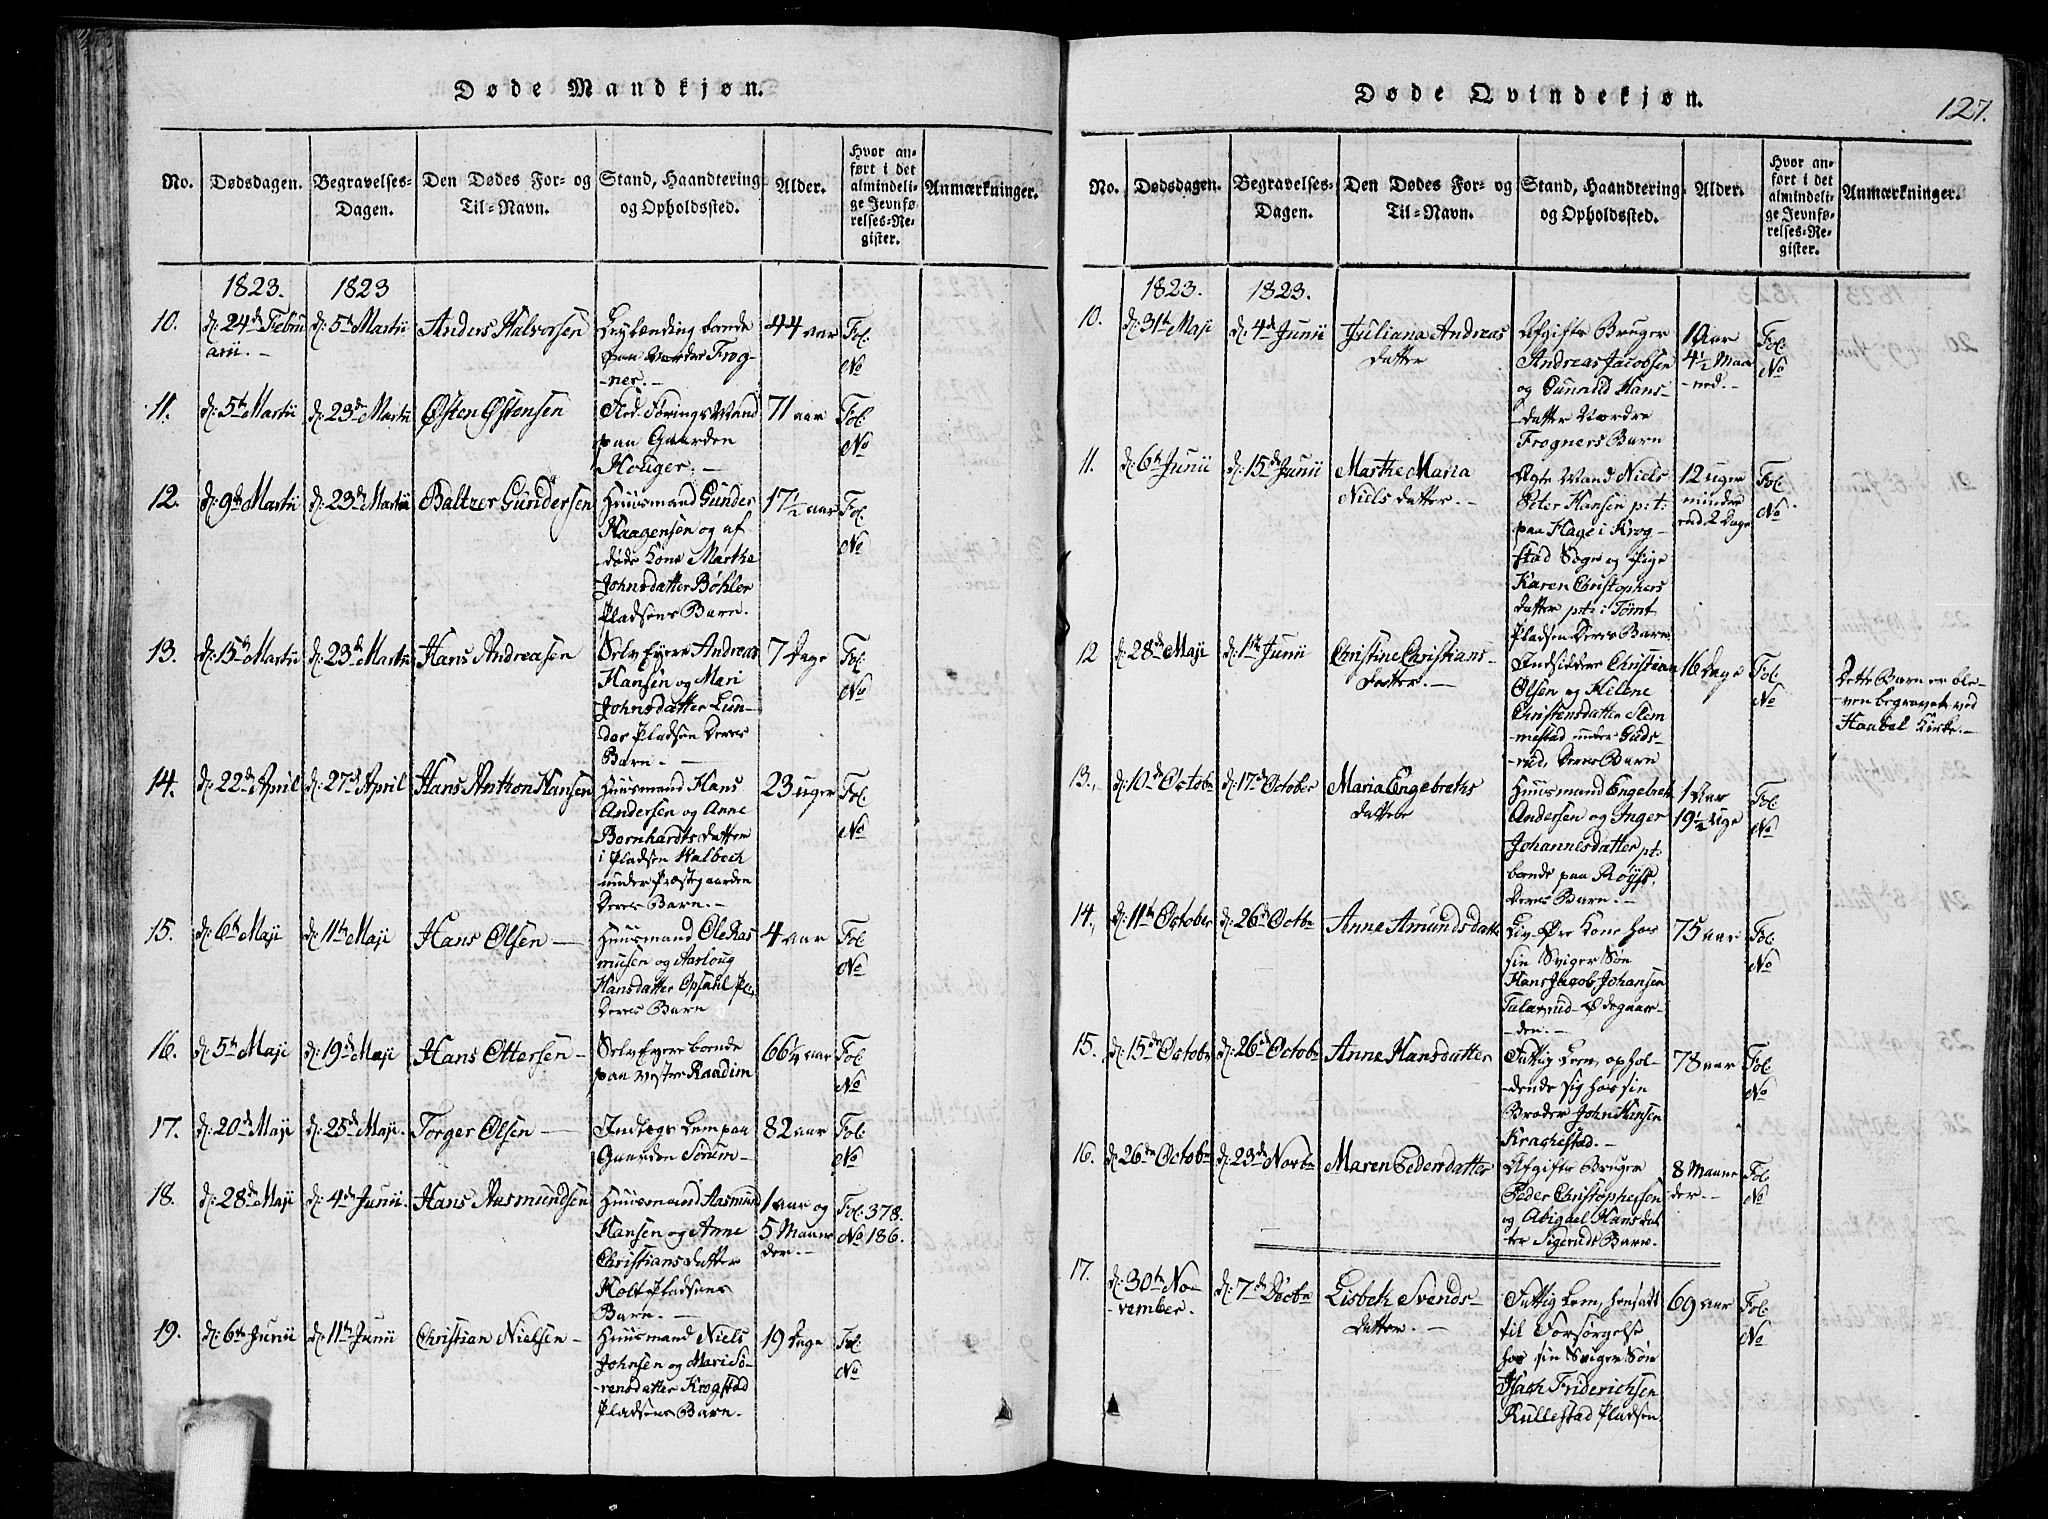 Døde Mandkjøn.
No.
Dødsdagen.
Begravelses-
Dagen.
Den Dødes For- og
Til-Navn.
Stand, Haandtering
og Opholdssted.
Alder.
Hvor an-
ført i det
almindeli-
ge Jevnfø-
relses-Re-
gister.
Anmærkninger.
1823.
1823
10.
d: 24de Febru
arii.-
d: 5te Martii
Anders Halvorsen
Leylænding boende
paa Nordre Frog-
ner.-
44 aar
Fol.
No
11.
d: 5te Martii
d: 23de Martii
Østen Østensen
Fød.Førings Mand
paa Gaarden
Houger.-
71 aar
Fol.
No
12.
d: 9de Martii
d: 23de Martii
Baltzer Gundersen
Huusmand Gunder
Haagensen og af
døde Kone Marthe
Johnsdatter Bøhler
Pladsens Barn.
17½ aar
Fol.
No
13.
d: 15de Martii
d: 23de Martii
Hans Andreasen
Selv Eyere Andreas
Hansen og Mari
Johnsdatter Lun-
der Pladsen Deres
Barn.-
7 Dage
Fol.
No
14.
d: 22de April
d: 27de April
Hans Anthon Hansen
Huusmand Hans
Andersen og Anne
Bernhardts datter
i Pladsen Walbech
under Præstegaarden
Deres Barn.-
23 uger
Fol.
No
15.
d: 6te Maji
d: 11te Maji
Hans Olsen -
Huusmand Ole Ras
musen og Aaslaug
Hansdatter Opsahl Pl:
Deres Barn
4 aar
Fol
No
16.
d: 5te Maji
d: 19de Maji
Hans Ottersen -
Selv Eyere boende
paa vestre Raadim
66¼ aar
Fol
No
17.
d: 20de Maji
d: 25de Maji.
Torger Olsen -
Indtægs Lem paa
Gaarden Sørum-
82 aar
Fol:
No
18.
d: 28de Maji
d: 4de Junii
Hans Aasmundsen
Huusmand Aasmund
Hansen og Anne
Christiansdatter
Holt Pladsens
Barn.-
1 aar og
5 Maane
der.-
Fol: 378.
No 186.
19.
d: 6te Junii
d: 11te Junii
Christian Nielsen -
Huusmand Niels
Johnsen og Mari Sø-
rensdatter Krogstad
Pladsens Barn.
19 Dage
Fol.
No
Døde Qvindekjøn.
127.
No.
Dødsdagen.
Begravelses-
Dagen.
Den Dødes For- og
Til-Navn.
Stand, Haandtering
og Opholdssted.
Alder.
Hvor an-
ført i det
almindeli-
ge Jevnfø-
relses-Re-
gister.
Anmærkninger.
1823.
1823.
10.
d: 31te Maji
d: 4de Junii
Juliana Andreas
datter
Afgifts Bruger
Andreas Jacobsen
og Gunnild Hans-
datter Nordre
Frogners Barn
1 Aar
4½ Maa
ned.-
Fol.
No
11.
d: 6te Junii
d: 15de Junii
Marthe Maria
Niels datter.-
Ægte Mand Niels
Peter Hansen p:t:
paa Hage i Krog-
stad Sogn og Pige
Karen Christophers
datter p:t: i Tømt
Pladsen Deres Barn
12 uger
mindre
end 2 Dage
Fol.
No
12
d: 28de Maji
d: 1ste Junii
Christine Christians-
datter.-
Indsiddere Christian
Olsen og Helene
Christensdatter Slem
mestad under Guds-
rud Deres Barn
16 Dage
Fol.
No
Dette Barn er ble-
ven begravet ved
Haabel Kirke.-
13.
d: 10de Octobr
d: 17de October
Maria Engebreths
datter
Huusmand Engebreth
Andersen og Inger
Johannesdatter pt:
boende paa Røyse,
Deres Barn.-
1 Aar
19½ Uge
Fol.
No
14.
d: 11te October
d: 26de Octbr
Anne Amundsdatter
Liv-Øre Kone hos
sin Sviger Søn
Hans Jacob Johansen
Talarrud-Ødegaar-
den.-
75 aar
Fol.
No
15.
d: 15de Octobr
d: 26de Octobr
Anne Hansdatter
Fattig Lem, ophol-
dende sig hos sin
Broder John Hansen
Kraghestad.-
78 aar
Fol.
No
16.
d: 26de Octobr
d: 23de Novbr
Maren Pedersdatter
Afgifts Bruger
Peder Christophersen
og Abigael Hans dat
ter Sigeruds Barn.
8 Maane
der.-
Fol.
No
17.
d: 30te No-
vember.
d: 7de Decbr
Lisbeth Svends-
datter.-
Fattig Lem, hensatt
til Forsørgelse
hos sin Sviger Søn
Isach Friderichsen
Kullestad Pladsen
69 aar
Fol.
No